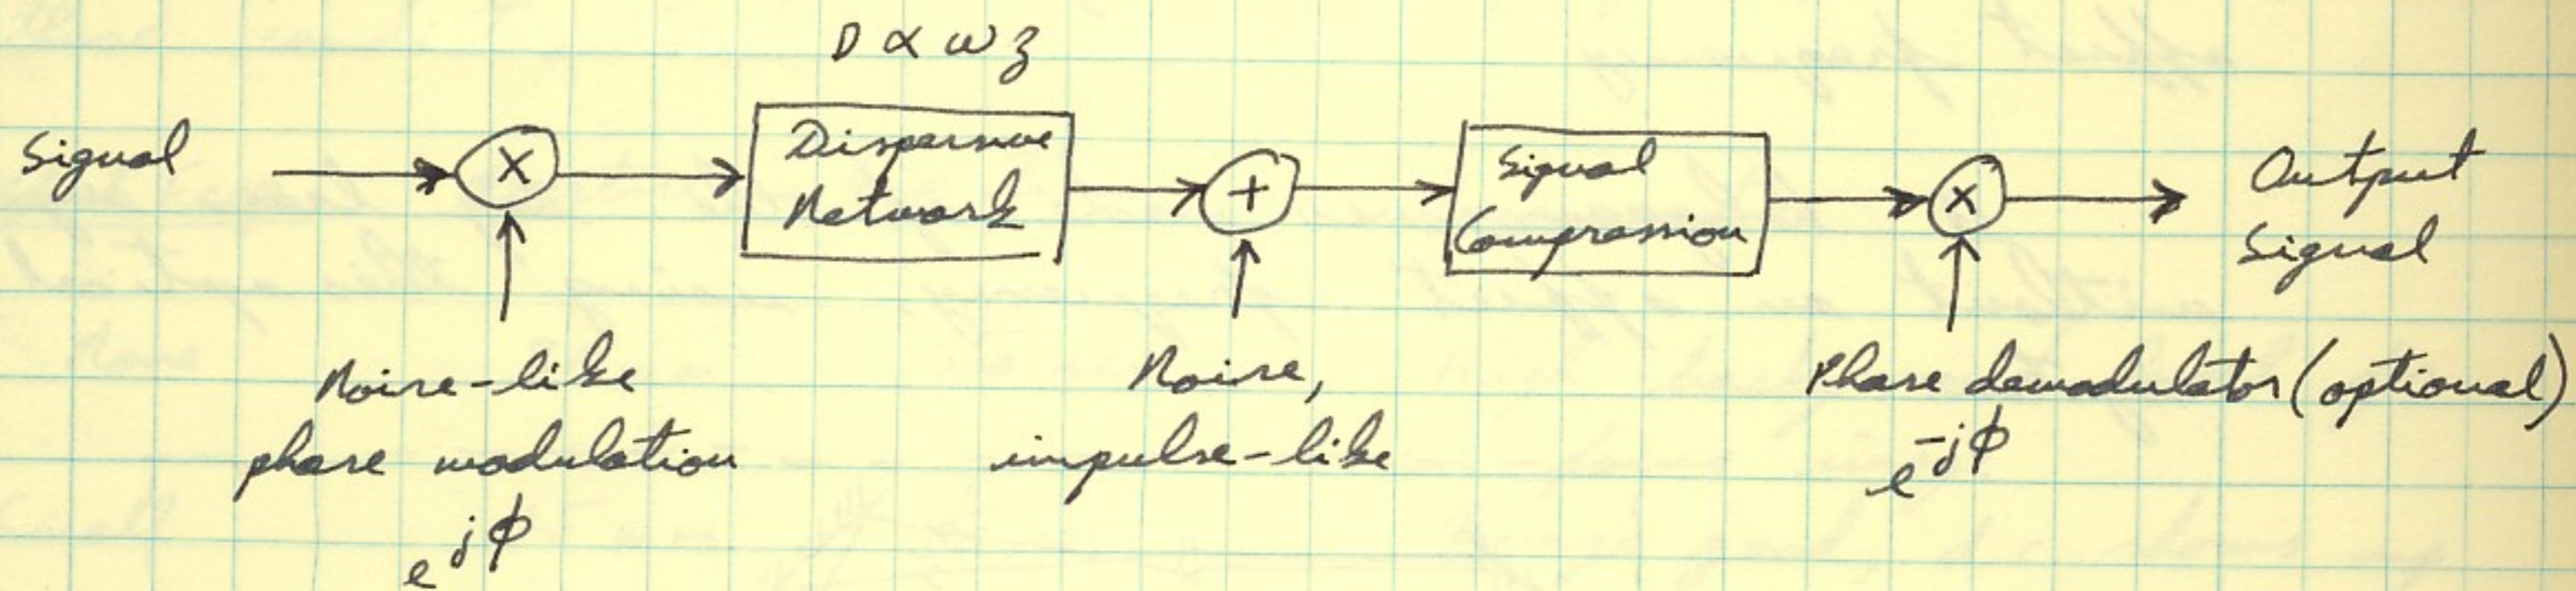 D ∝ ωz
Signal
X
Dispersive
Network
+
Signal
Compression
X
Output
Signal
Noise-like
phase modulation
e^jϕ
Noise,
impulse-like
Phase demodulator (optional)
e^-jϕ